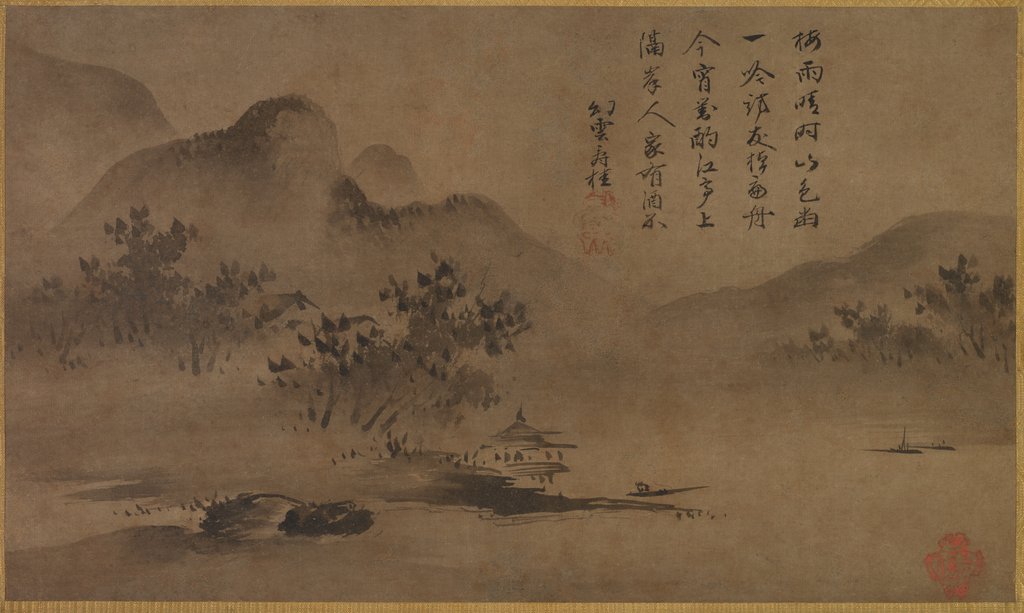 梅雨晴時山色幽
一吟詩友棹扁舟
今宵蒭酌江亭上
隔岸人家有酒不
幻雲壽桂